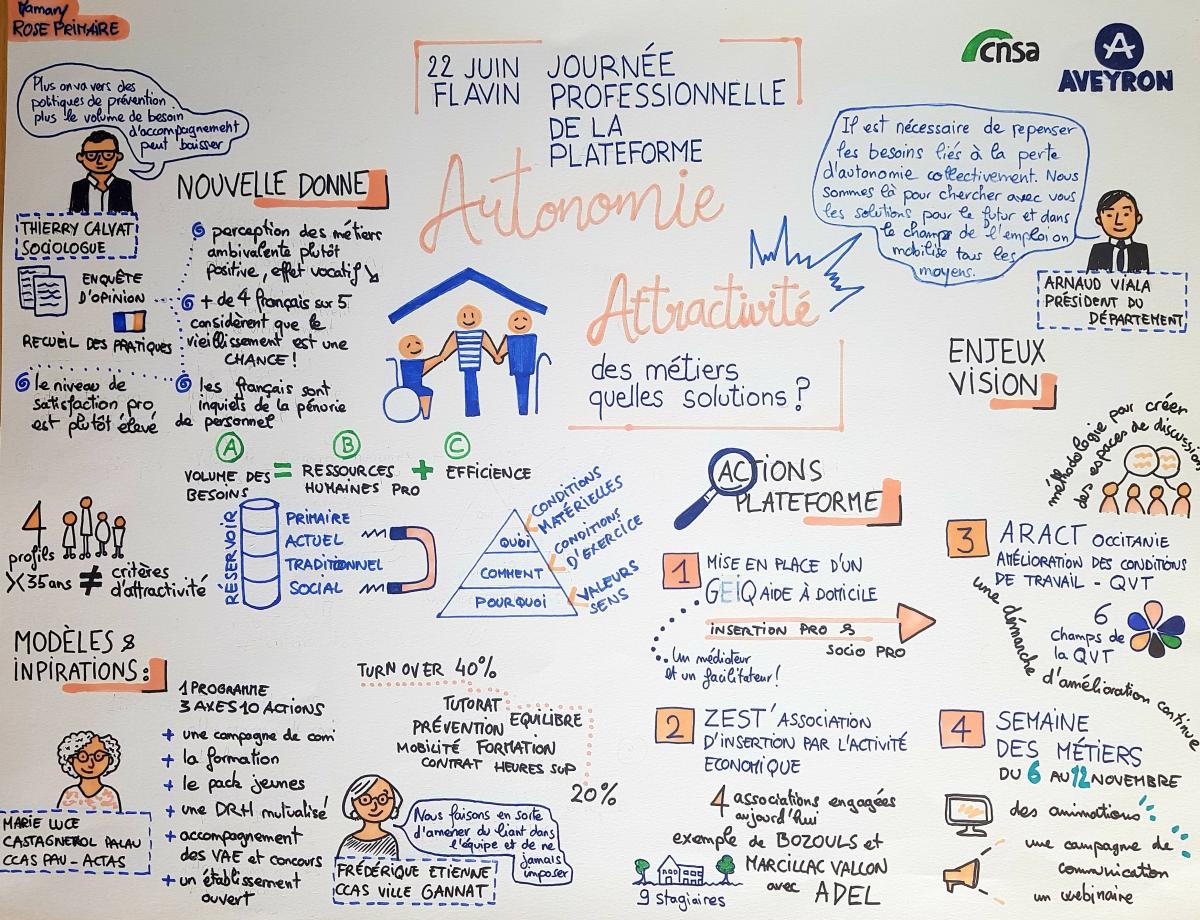 Mamany
ROSE PRIMAIRE
22 JUIN
FLAVIN
JOURNÉE
PROFESSIONNELLE
DE LA
PLATEFORME
Autonomie
Attractivité
des métiers
quelles solutions ?
cnsa
AVEYRON
Plus on va vers des
politiques de prévention
plus le volume de besoin
d'accompagnement
peut baisser
THIERRY CALVAT
SOCIOLOGUE
ENQUÊTE
D'OPINION
RECUEIL DES PRATIQUES
NOUVELLE DONNE
perception des métiers
ambivalente plutôt
positive, effet vocatif
+ de 4 français sur 5
considèrent que le
vieillissement est une
CHANCE !
le niveau de
satisfaction pro
est plutôt élevé
les français sont
inquiets de la pénurie
de personnel
A
B
C
VOLUME DES
BESOINS
=
RESSOURCES
HUMAINES PRO
+
EFFICIENCE
4
profils
X 35 ans
≠
critères
d'attractivité
RÉSERVOIR
PRIMAIRE
ACTUEL
TRADITIONNEL
SOCIAL
QUOI
COMMENT
POURQUOI
CONDITIONS
MATÉRIELLES
CONDITIONS
D'EXERCICE
VALEURS
SENS
Il est nécessaire de repenser
les besoins liés à la perte
d'autonomie collectivement. Nous
sommes là pour chercher avec vous
les solutions pour le futur et dans
le champs de l'emploi on
mobilise tous les
moyens.
ARNAUD VIALA
PRÉSIDENT DU
DÉPARTEMENT
ENJEUX
VISION
MODÈLES &
INPIRATIONS :
MARIE LUCE
CASTAGNEROL PALAU
CCAS PAU - ACTAS
1 PROGRAMME
3 AXES 10 ACTIONS
+ une campagne de com
+ la formation
+ le pack jeunes
+ une DRH mutualisé
+ accompagnement
des VAE et concours
+ un établissement
ouvert
TURN OVER 40%
TUTORAT
PRÉVENTION EQUILIBRE
MOBILITÉ FORMATION
CONTRAT HEURES SUP
20%
Nous faisons en sorte
d'amener du liant dans
l'équipe et de ne
jamais
imposer
FRÉDÉRIQUE ETIENNE
CCAS VILLE GANNAT
ACTIONS
PLATEFORME
1
MISE EN PLACE D'UN
GEIQ AIDE À DOMICILE
INSERTION PRO &
SOCIO PRO
Un médiateur
et un facilitateur !
2
ZEST' ASSOCIATION
D'INSERTION PAR L'ACTIVITÉ
ECONOMIQUE
4 associations engagées
aujourd'hui
exemple de BOZOULS et
MARCILLAC VALLON
avec ADEL
9 stagiaires
méthodologie pour créer
des espaces de discussion
3
ARACT OCCITANIE
AMÉLIORATION DES CONDITIONS
DE TRAVAIL - QVT
6
champs de
la QVT
une démarche d'amélioration continue
4
SEMAINE
DES MÉTIERS
DU 6 AU 12 NOVEMBRE
des animations
une campagne de
communication
un webinaire